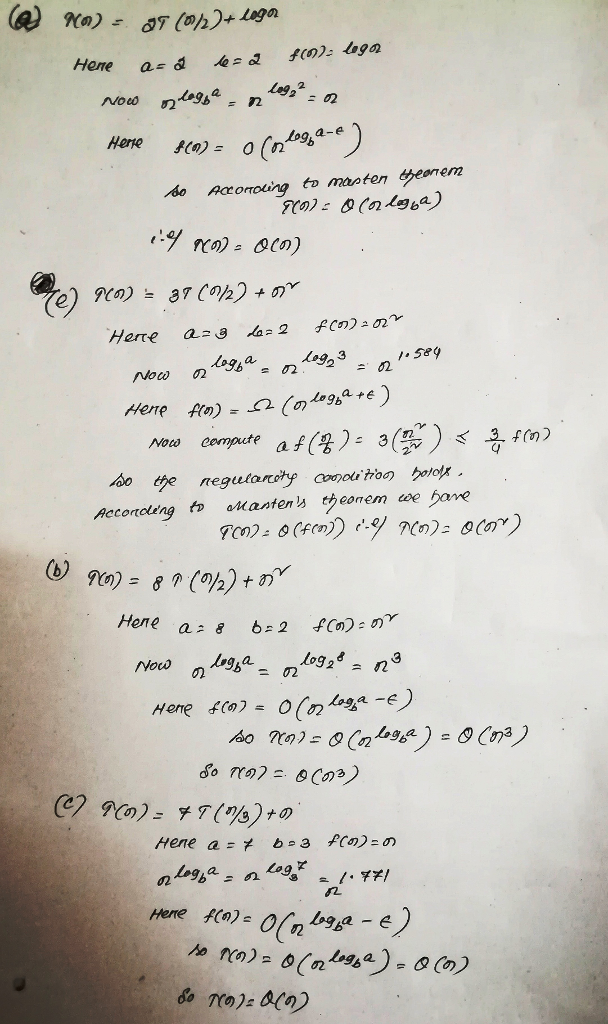 (a) T(n) = 2T(n/2) + logn
Here a = 2 b = 2 f(n) = logn
Now n^{log_b a} = n^{log_2 2} = n
Here f(n) = O(n^{log_b a - ϵ})
So According to master theorem
T(n) = Θ(n^{log_b a})
i.e/ T(n) = Θ(n)
(e) T(n) = 3T(n/2) + n²
Here a = 3 b = 2 f(n) = n²
Now n^{log_b a} = n^{log_2 3} = n^{1.584}
Here f(n) = Ω(n^{log_b a + ϵ})
Now compute af(n/b) = 3(n²/2²) ≤ 3/4 f(n)
So the regularity condition holds.
According to Master's theorem we have
T(n) = Θ(f(n)) i.e/ T(n) = Θ(n²)
(b) T(n) = 8T(n/2) + n²
Here a = 8 b = 2 f(n) = n²
Now n^{log_b a} = n^{log_2 8} = n³
Here f(n) = O(n^{log_b a - ϵ})
So T(n) = Θ(n^{log_b a}) = Θ(n³)
So T(n) = Θ(n³)
(c) T(n) = 7T(n/3) + n
Here a = 7 b = 3 f(n) = n
n^{log_b a} = n^{log_3 7} = n^{1.771}
Here f(n) = O(n^{log_b a - ϵ})
So T(n) = Θ(n^{log_b a}) = Θ(n)
So T(n) = Θ(n)